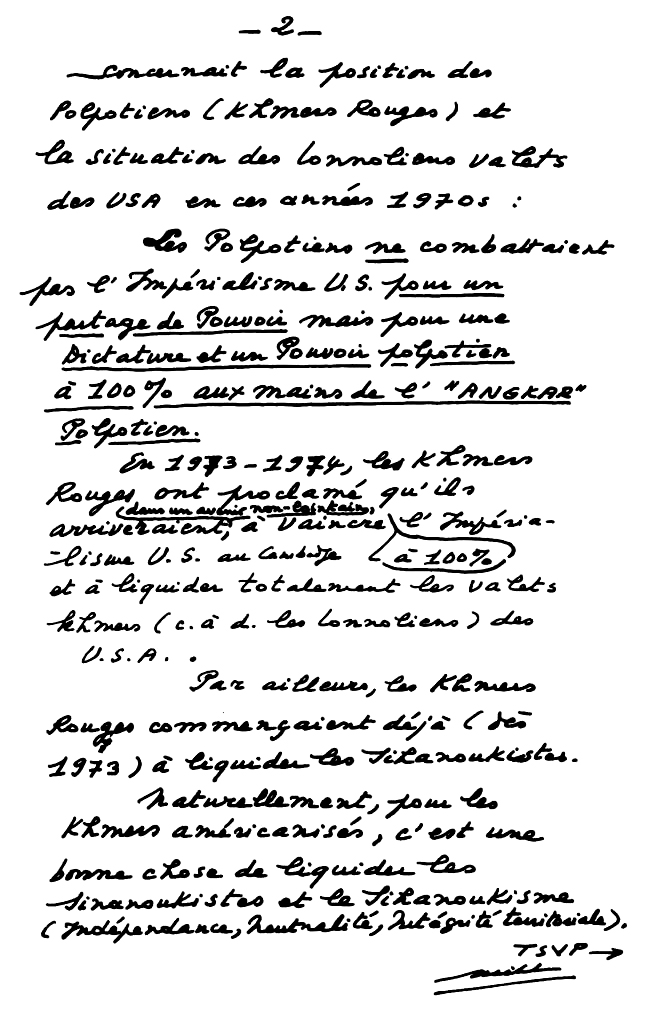 — 2 —
concernait la position des
Polpotiens (Khmers Rouges) et
la situation des Lonnoliens valets
des USA en ces années 1970s :
Les Polpotiens ne combattaient
pas l'Impérialisme U.S. pour un
partage de Pouvoir mais pour une
Dictature et un Pouvoir polpotien
à 100% aux mains de l'"ANGKAR"
Polpotien.
En 1973-1974, les Khmers
Rouges ont proclamé qu'ils
(dans un avenir non-lointain,)
arriveraient, à vaincre l'Impéria-
-lisme U.S. au Cambodge à 100%
et à liquider totalement les valets
khmers (c.à d. les Lonnoliens) des
U.S.A. .
Par ailleurs, les Khmers
Rouges commençaient déjà (dès
1973) à liquider les Sihanoukistes.
Naturellement, pour les
Khmers américanisés, c'est une
bonne chose de liquider les
Sihanoukistes et le Sihanoukisme
(Indépendance, Neutralité, Intégrité territoriale).
TSVP →